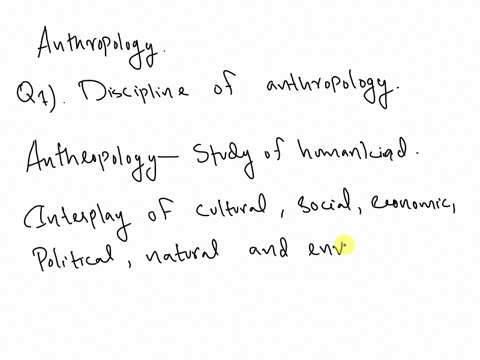 Anthropology.
Q1). Discipline of anthropology.
Anthropology— Study of humankind.
(Interplay of cultural, social, economic,
Political, natural and env